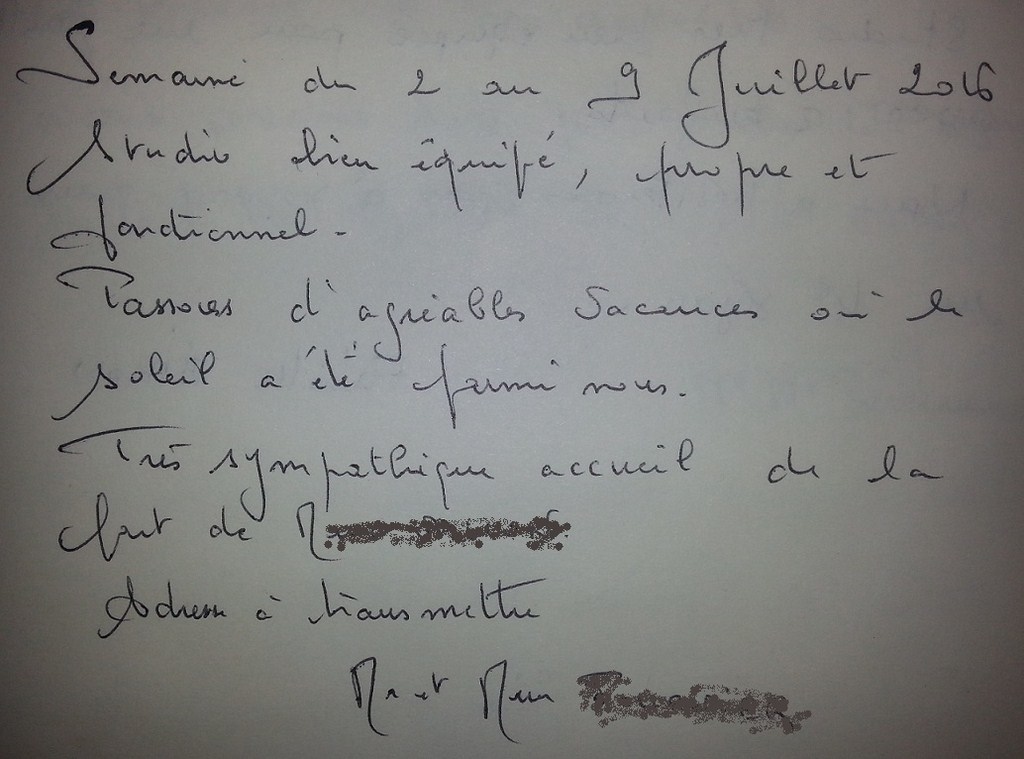 Semaine du 2 au 9 Juillet 2016
Studio bien équipé, propre et
fonctionnel.
Passons d'agréables vacances où le
soleil a été parmi nous.
Très sympathique accueil de la
part de
Adresse à transmettre
Mr et Mme